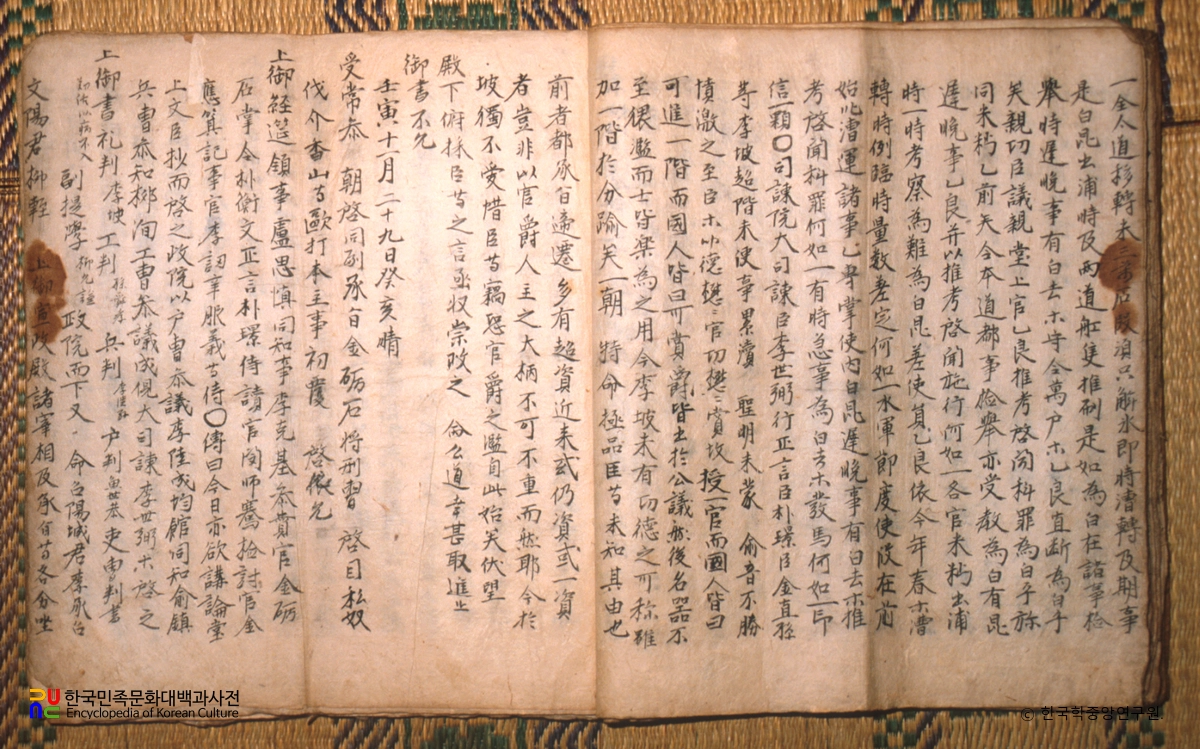 一全人道移轉未 只解氷即時漕轉及期事
是白昆出浦時及兩道舡隻推刷是如為白在諸事檢
擧時遲晩事有白去等守令萬戶等乙良直斷為白乎
矣親功臣議親堂上官乙良推考啓聞科罪為白乎旀
同未朔乙前矣令本道都事檢擧亦受敎為白有昆
遲晩事乙良并以推考啓聞施行何如一各官未朔出浦
時一時考察為難為白昆差使員乙良依今年春等漕
轉時例臨時量數差定何如一水軍節度使段在前
始此漕運諸事乙專掌使內白昆遲晩事有白去等推
考啓聞科罪何如一有時急事為白去等發馬何如一印
信一顆〇司諫院大司諫臣李世弼行正言臣朴璟臣金直孫
等李坡超階未便事累瀆 聖明未蒙 兪音不勝
憤激之至臣等以德懋懋官功懋懋賞故 授一官而國人皆曰
可進一階而國人皆曰可賞爵皆出於公議然後名器不
至猥濫而士皆樂為之用今李坡未有功德之可称雖
加一階於分踰矣一朝 特命極品臣等未知其由也
前者都承旨遞遷多有超資近來或仍資或一資
者豈非以官爵人主之大柄不可不重而然耶今於
坡獨不愛惜臣等竊恐官爵之濫自此始矣伏望
殿下俯採臣等之言亟收崇政之 命公道幸甚取進止
御書不允
壬寅十一月二十九日癸亥晴
受常參 朝啓同副承旨金礪石將刑曹 啓目私奴
伐介畓山等歐打本主事初覆 啓依允
上御經筵領事盧思愼同知事李克基參贊官金礪
石掌令朴衡文正言朴璟侍讀官閔師騫檢討官金
應箕記事官李詞辛服義等侍〇傳曰今日亦欲講論堂
上文臣抄而啓之政院以戶曹參議李陸成均館同知兪鎭
兵曹參知鄭洵工曹參議成俔大司諫李世弼等啓之
上御書礼判李坡工判 兵判 戶判 吏曹判書
副提學 政院而下又 命召陽城君李承召
文陽君柳輕 上御宣政殿諸宰相及承旨等各分坐
한국민족문화대백과사전
Encyclopedia of Korean Culture
© 한국학중앙연구원